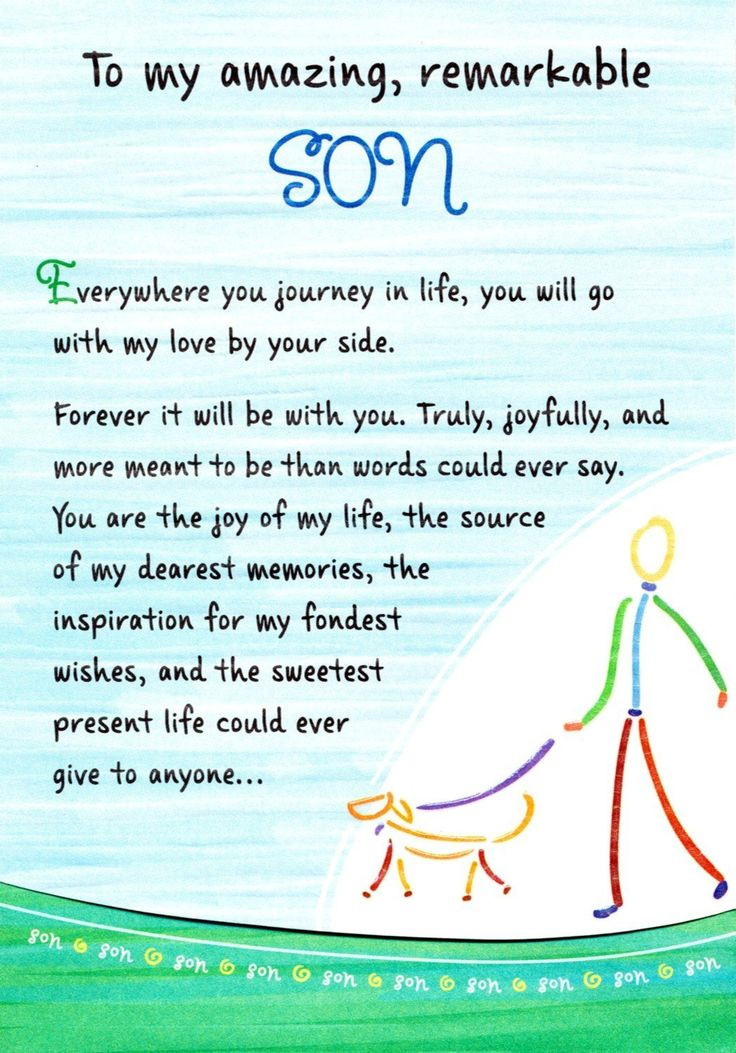 To my amazing, remarkable
son
Everywhere you journey in life, you will go
with my love by your side.
Forever it will be with you. Truly, joyfully, and
more meant to be than words could ever say.
You are the joy of my life, the source
of my dearest memories, the
inspiration for my fondest
wishes, and the sweetest
present life could ever
give to anyone...
son son son son son son son son son son